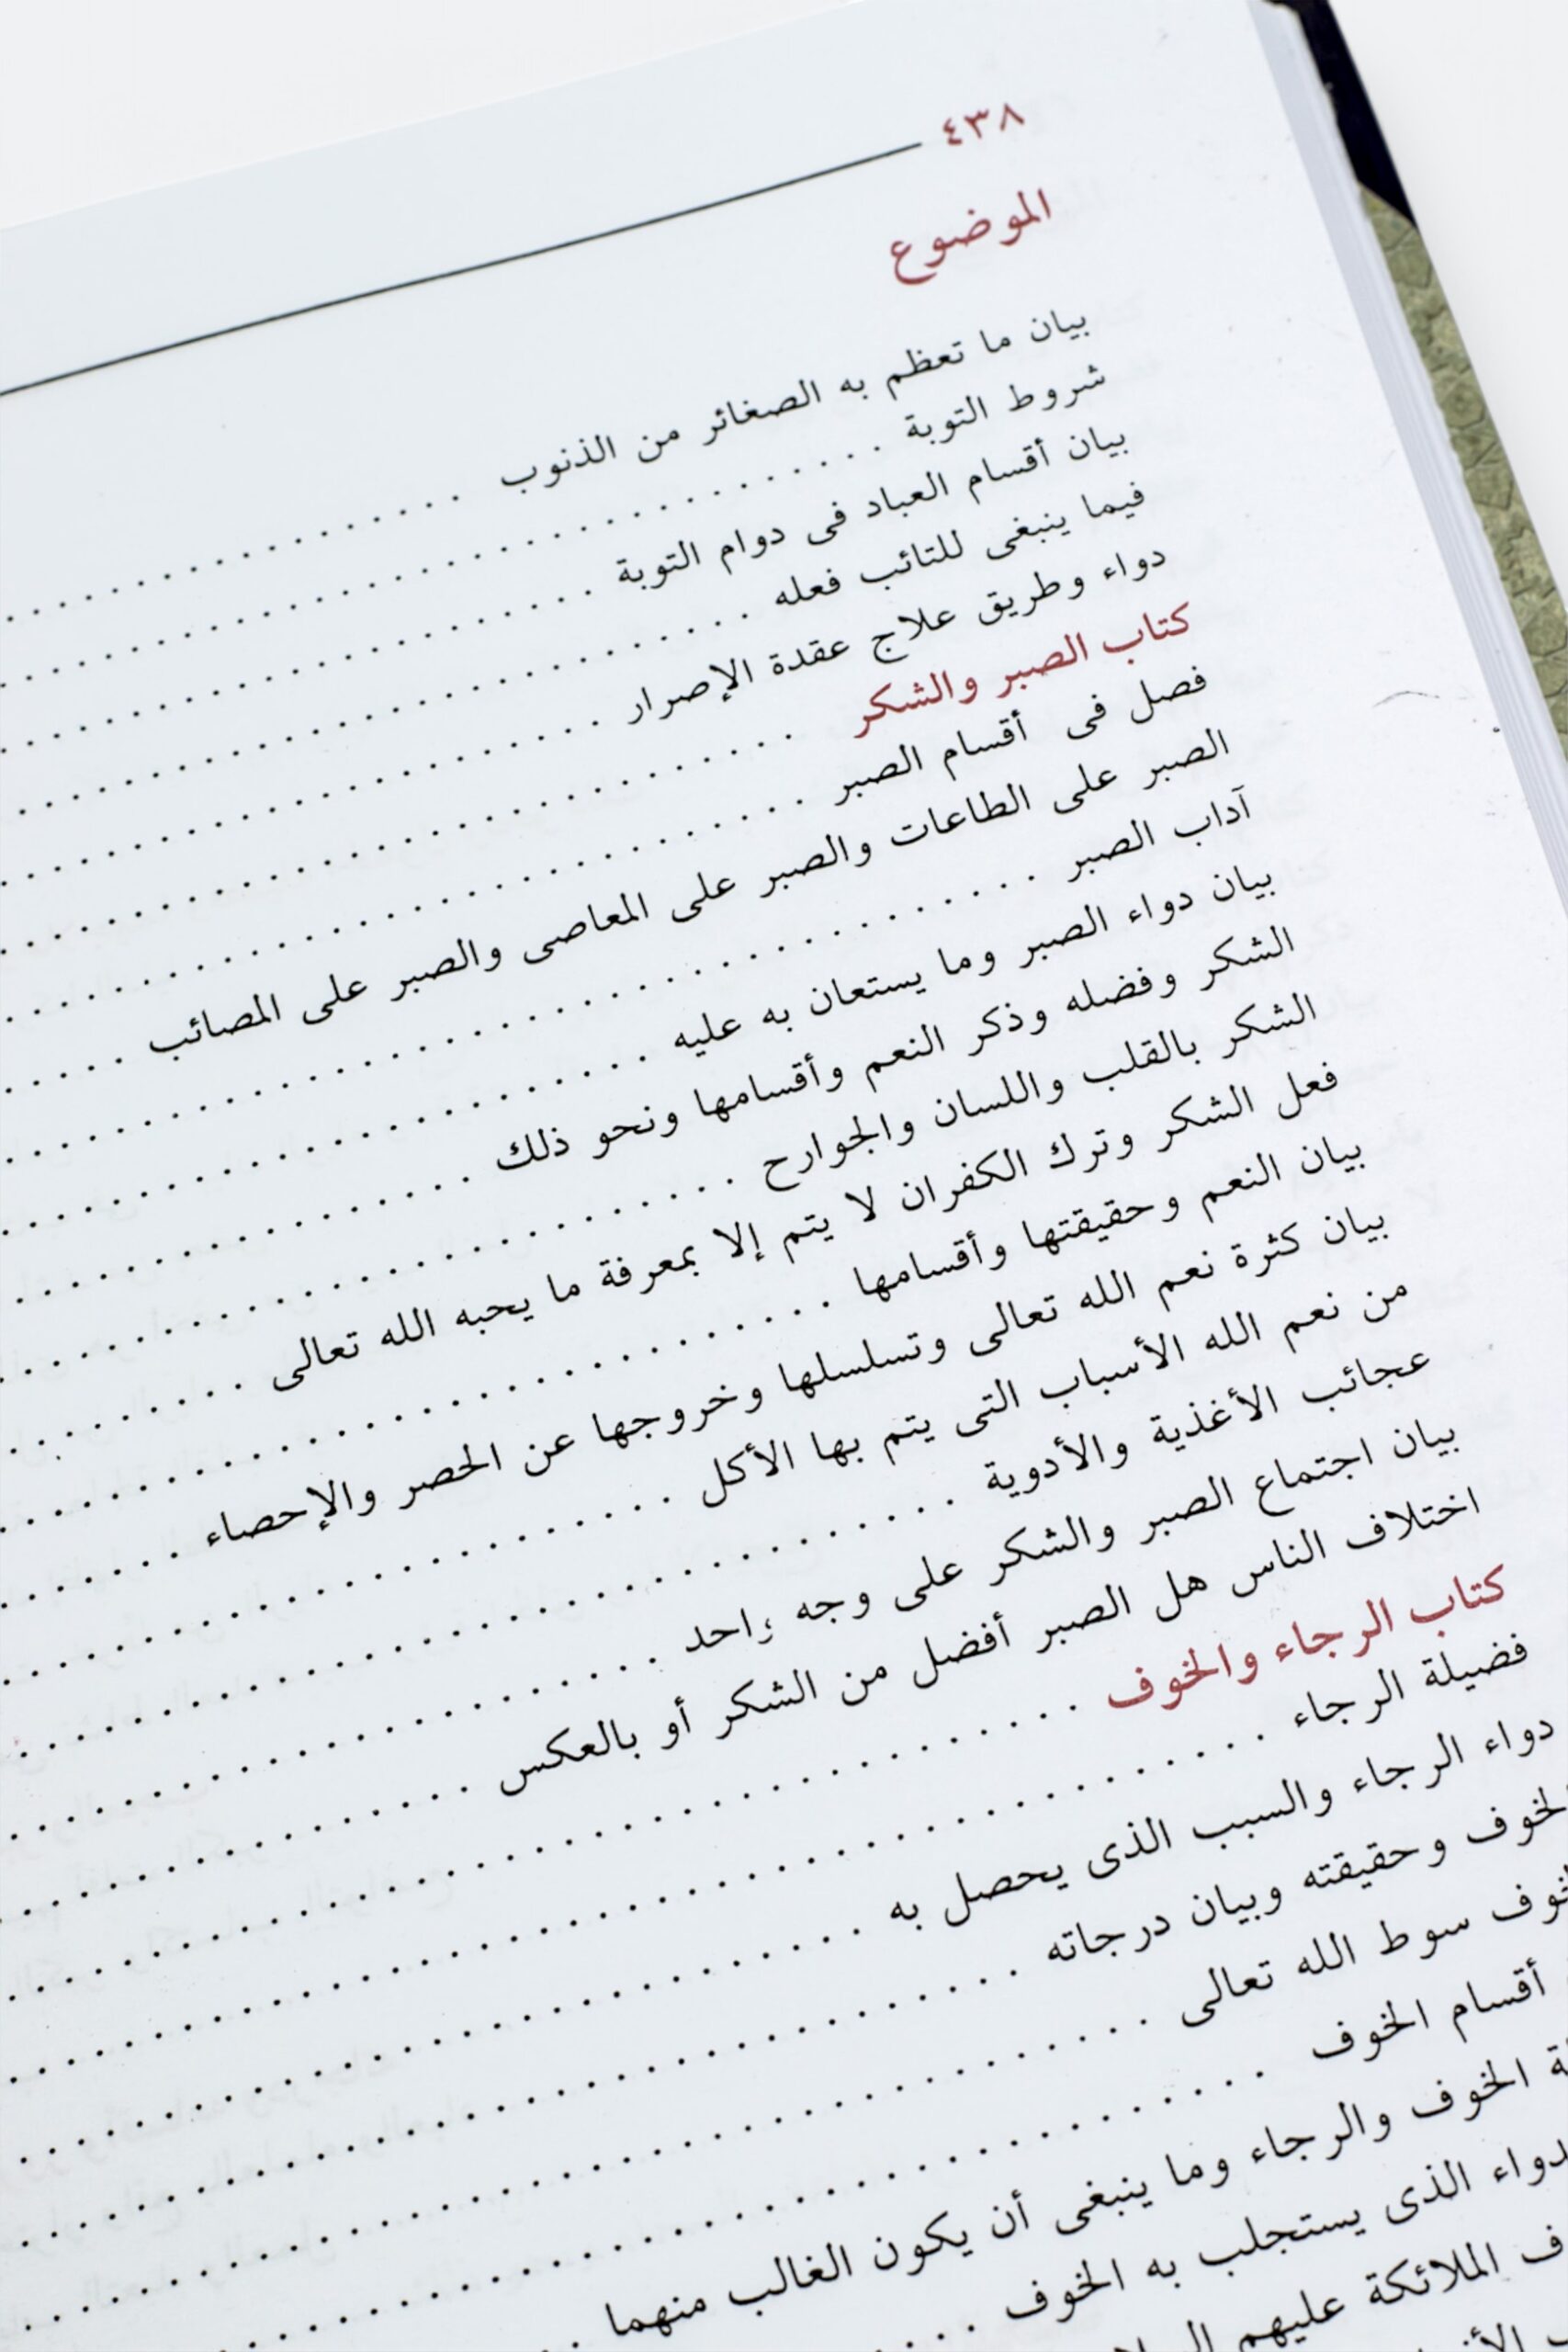 ٤٣٨
الموضوع
بيان ما تعظم به الصغائر من الذنوب
شروط التوبة
بيان أقسام العباد فى دوام التوبة
فيما ينبغى للتائب فعله
دواء وطريق علاج عقدة الإصرار
كتاب الصبر والشكر
فصل فى أقسام الصبر
الصبر على الطاعات والصبر على المعاصى والصبر على المصائب
آداب الصبر
بيان دواء الصبر وما يستعان به عليه
الشكر وفضله وذكر النعم وأقسامها ونحو ذلك
الشكر بالقلب واللسان والجوارح
فعل الشكر وترك الكفران لا يتم إلا بمعرفة ما يحبه الله تعالى
بيان النعم وحقيقتها وأقسامها
بيان كثرة نعم الله تعالى وتسلسلها وخروجها عن الحصر والإحصاء
من نعم الله الأسباب التى يتم بها الأكل
عجائب الأغذية والأدوية
بيان اجتماع الصبر والشكر على وجه واحد
اختلاف الناس هل الصبر أفضل من الشكر أو بالعكس
كتاب الرجاء والخوف
فضيلة الرجاء
دواء الرجاء والسبب الذى يحصل به
الخوف وحقيقته وبيان درجاته
سوط الله تعالى
أقسام الخوف
الخوف والرجاء وما ينبغى أن يكون الغالب منهما
الذى يستجلب به الخوف
الملائكة عليهم